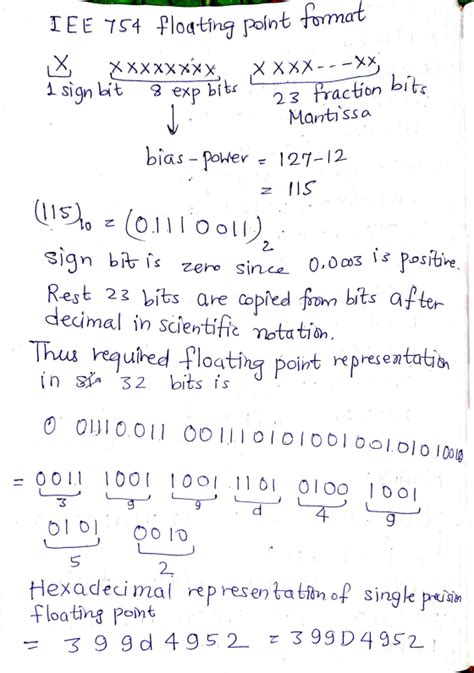 IEE 754 floating point format
X XXXXXXXX XXXX---XX
1 sign bit 8 exp bits 23 fraction bits
Mantissa
bias-power = 127-12
= 115
(115)10 = (01110011)2
sign bit is zero since 0.0003 is positive.
Rest 23 bits are copied from bits after
decimal in scientific notation.
Thus required floating point representation
in 32 bits is
0 01110011 00111010100100101010010
= 0011 1001 1001 1101 0100 1001
3 9 9 d 4 9
0101 0010
5 2
Hexadecimal representation of single precision
floating point
= 399d4952 = 399D4952